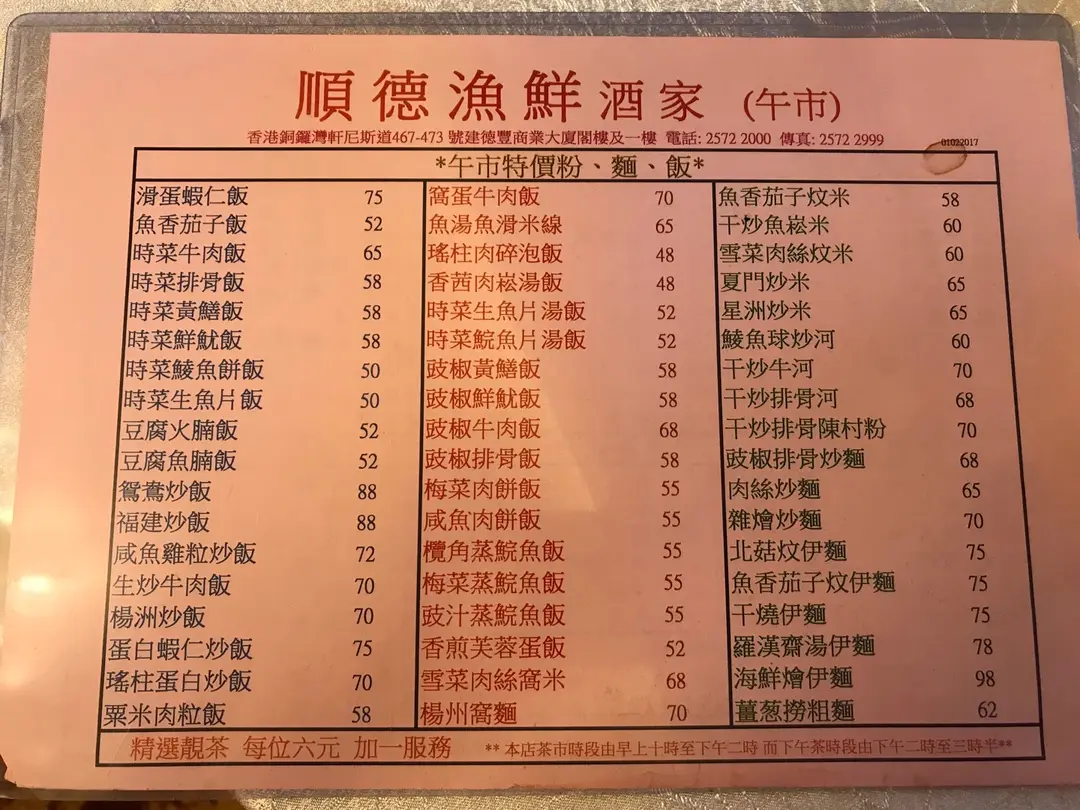 順德漁鮮酒家 (午市)
香港銅鑼灣軒尼斯道467-473 號建德豐商業大廈閣樓及一樓 電話: 2572 2000 傳真: 2572 2999
01022017
*午市特價粉、麵、飯*
滑蛋蝦仁飯 75
魚香茄子飯 52
時菜牛肉飯 65
時菜排骨飯 58
時菜黃鱔飯 58
時菜鮮魷飯 58
時菜鯪魚餅飯 50
時菜生魚片飯 50
豆腐火腩飯 52
豆腐魚腩飯 52
鴛鴦炒飯 88
福建炒飯 88
咸魚雞粒炒飯 72
生炒牛肉飯 70
楊洲炒飯 70
蛋白蝦仁炒飯 75
瑤柱蛋白炒飯 70
粟米肉粒飯 58
窩蛋牛肉飯 70
魚湯魚滑米線 65
瑤柱肉碎泡飯 48
香茜肉崧湯飯 48
時菜生魚片湯飯 52
時菜鯇魚片湯飯 52
豉椒黃鱔飯 58
豉椒鮮魷飯 58
豉椒牛肉飯 68
豉椒排骨飯 58
梅菜肉餅飯 55
咸魚肉餅飯 55
欖角蒸鯇魚飯 55
梅菜蒸鯇魚飯 55
豉汁蒸鯇魚飯 55
香煎芙蓉蛋飯 52
雪菜肉絲窩米 68
楊州窩麵 70
魚香茄子炆米 58
干炒魚崧米 60
雪菜肉絲炆米 60
夏門炒米 65
星洲炒米 65
鯪魚球炒河 60
干炒牛河 70
干炒排骨河 68
干炒排骨陳村粉 70
豉椒排骨炒麵 68
肉絲炒麵 65
雜燴炒麵 70
北菇炆伊麵 75
魚香茄子炆伊麵 75
干燒伊麵 75
羅漢齋湯伊麵 78
海鮮燴伊麵 98
薑葱撈粗麵 62
精選靚茶 每位六元 加一服務 ** 本店茶市時段由早上十時至下午二時 而下午茶時段由下午二時至三時半**